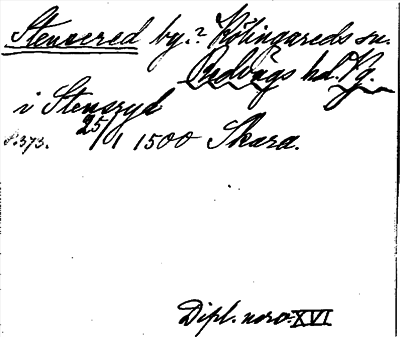 Stensered by.? Kölingareds sn.
Redvägs hd. Vg.
i Stensryd
s. 373. 25/1 1500 Skara.
Dipl. norv. XVI